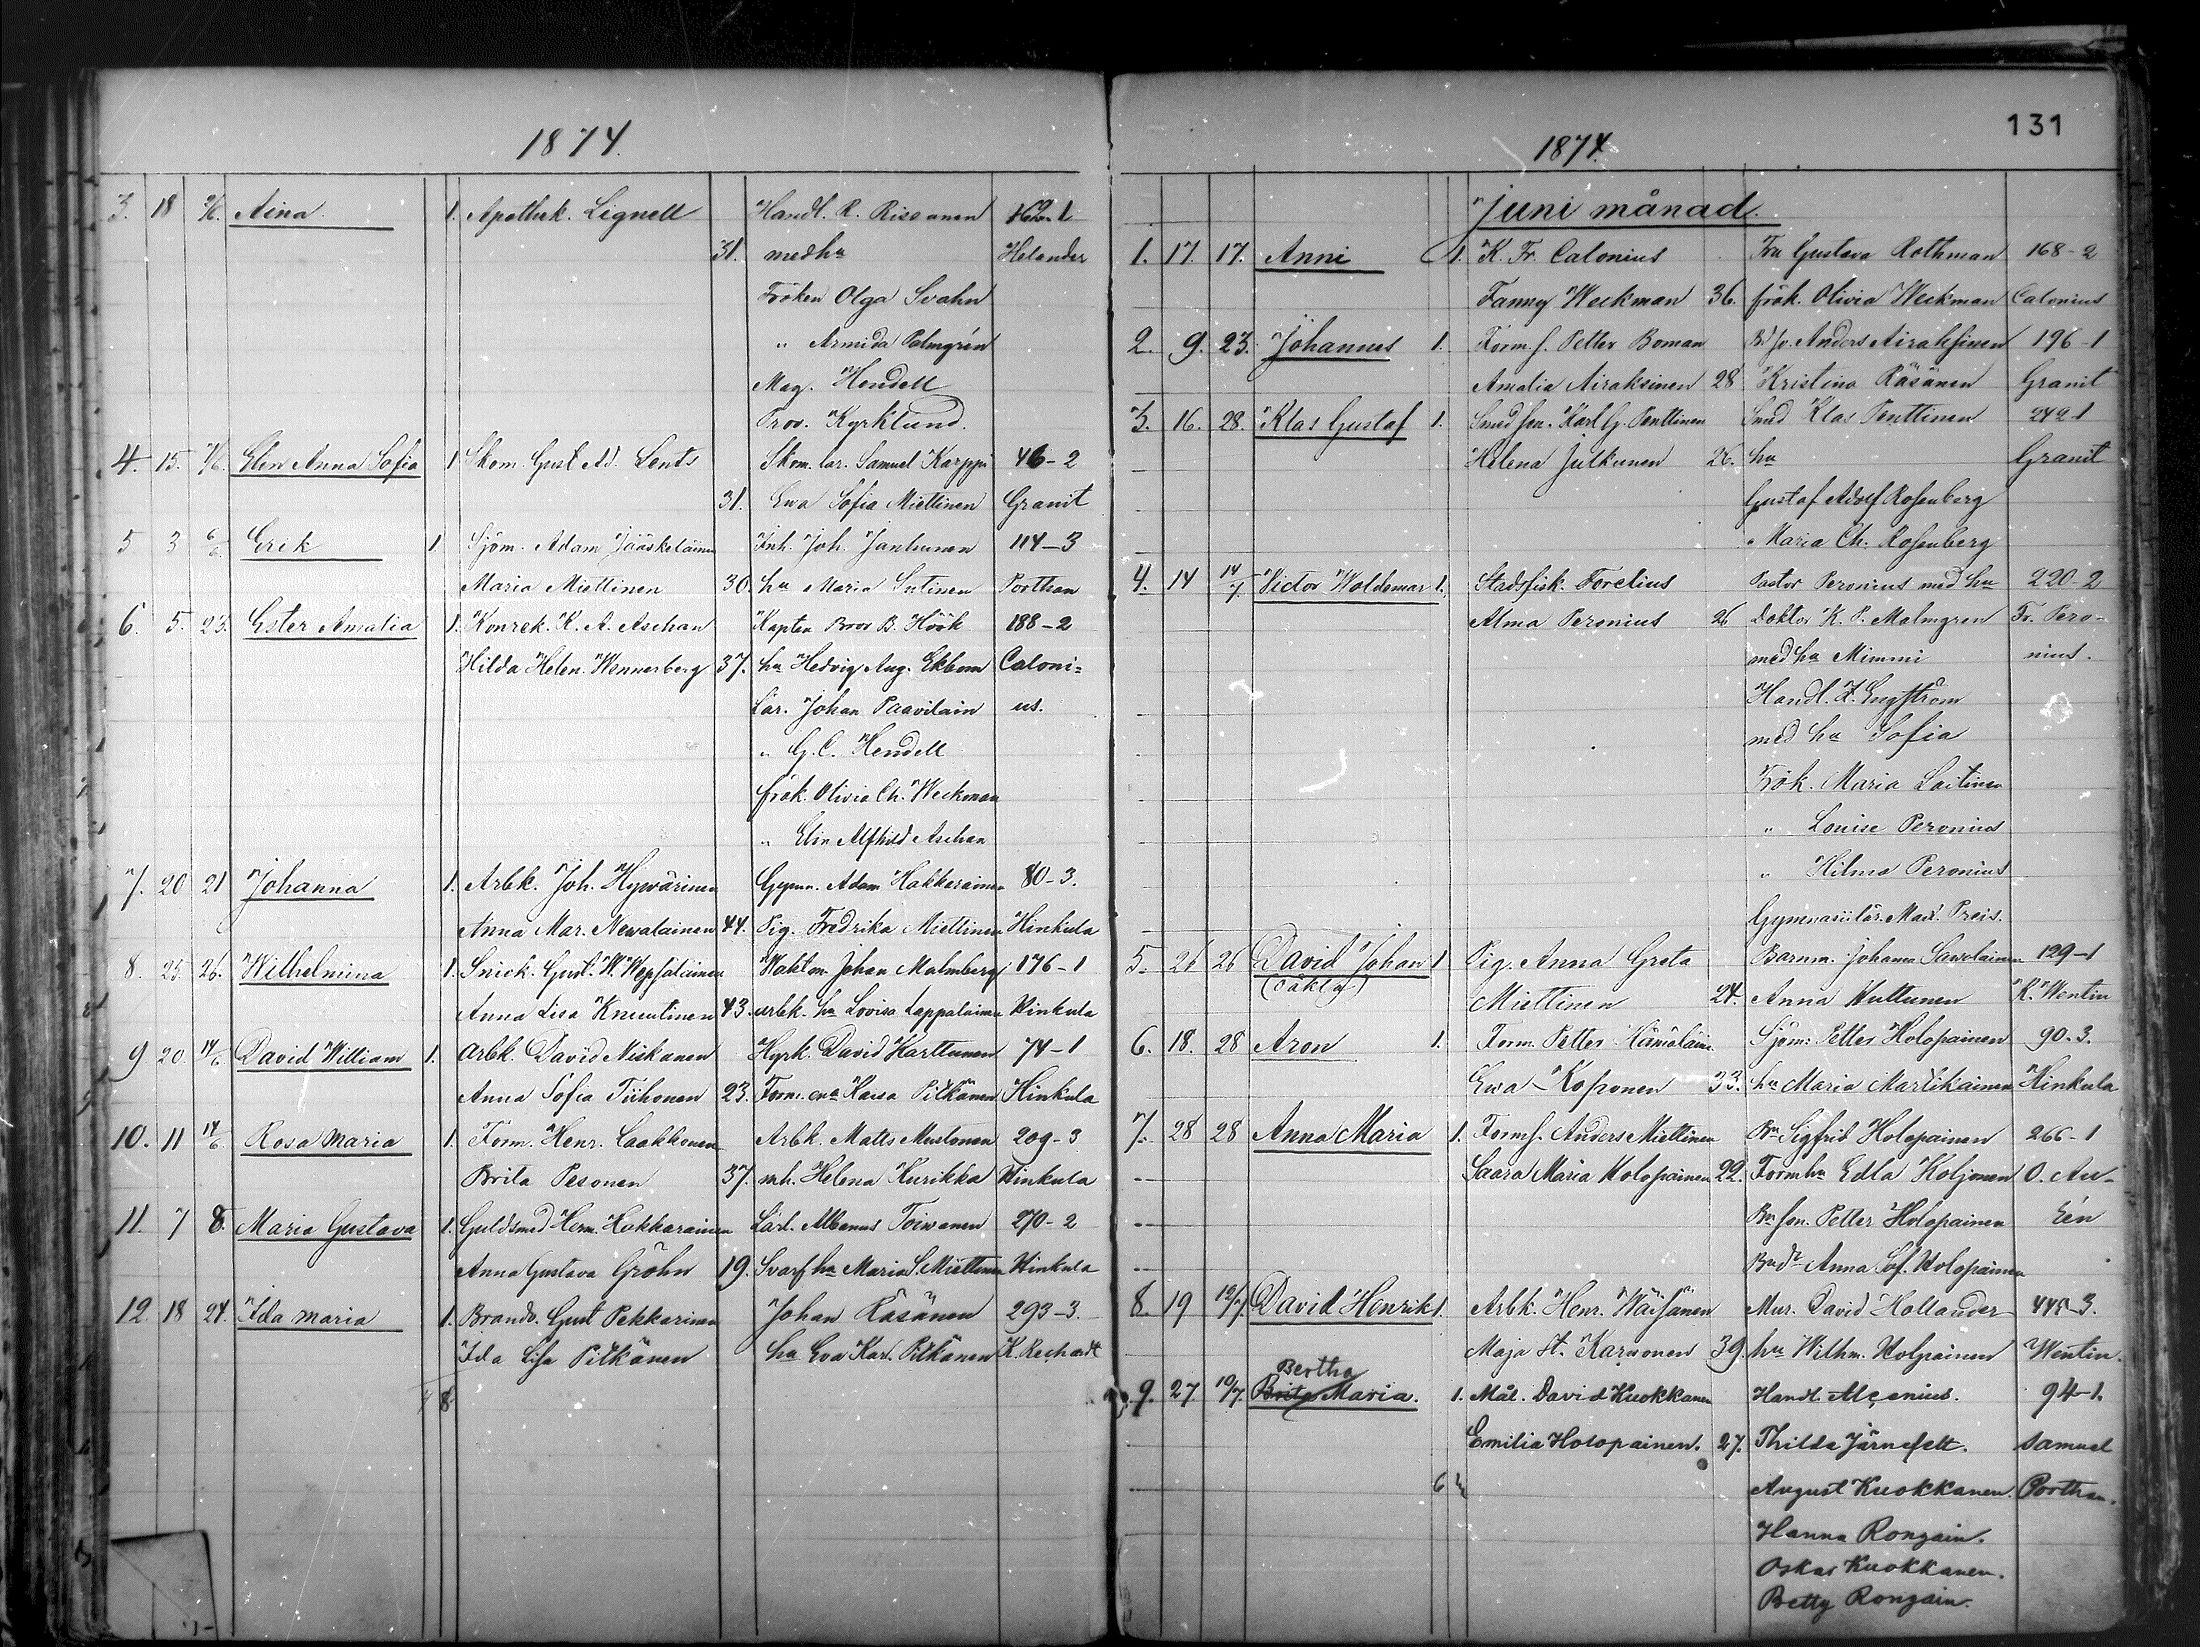 1874.
3. 18 Aina. 1. Apothek. Lignell Handl. R. Rissanen
31. med hu Helander
Fröken Olga Svahn
" Armida Palmgrén
Mag. Hendell
Prov. Kyrklund.
4. 15. Elin Anna Sofia 1 Skom. Gust. Ad. Lents Skom. lär. Samuel Karppi 46-2
31. Ewa Sofia Miettinen Granit
5 3 6/6 Erik 1 Sjöm. Adam Jääskeläinen Inh. Joh. Janhunen 114-3
Maria Miettinen 30. hu Maria Sutinen Porthan
6. 5. 23. Ester Amalia 1. Konrek. K. A. Aschan Kapten Bror B. Höök 188-2
Hilda Helen. Wennerberg 37. hu Hedvig Aug. Ekbom Caloni=
Lär. Johan Paavilain us.
" G. C. Hendell
frök. Olivia Ch. Weckman
" Elin Alfhild Aschan
7. 20 21 Johanna 1. Arbk. Joh. Hyvärinen Gymn. Adam Hakkarainen 80-3.
Anna Mar. Newalainen 44. Pig. Fredrika Miettinen Hinkula
8. 25 26. Wilhelmina 1. Snick. Gust. W. Wepsäläinen Waktm. Johan Malmberg 176-1
Anna Lisa Knuutinen 43. arbk. hu Lovisa Lappalainen Hinkula
9 20. 14/6 David William 1. Arbk. David Niskanen Hyrk. David Karttunen 74-1
Anna Sofia Tiihonen 23. Form. Kaisa Pitkänen Hinkula
10. 11 14/6 Rosa Maria 1. Form. Henr. Laakkonen Arbk. Matts Mustonen 209-3
Brita Pesonen 37. inh. Helena Kurikka Hinkula
11. 7 8. Maria Gustava 1. Guldsmed Herm. Hakkarainen Lärl. Albanus Toiwanen 270-2
Anna Gustava Gröhn 19. Svarf hu Maria S. Miettinen Hinkula
12. 18 24. Ida Maria 1. Brandv. Gust Pekkarinen Johan Räsänen 293-3.
Ida Lisa Pitkänen hu Eva Kar. Pitkänen K. Rechardt
8
131
1874.
Juni månad.
1. 17. 17. Anni 1. K. Fr. Calonius Fru Gustava Rothman 168-2
Fanny Weckman 36. frök. Olivia Weckman Calonius
2. 9. 23. Johannes 1. Form. f. Petter Boman Anders Airaksinen 196-1
Amalia Airaksinen 28 Kristina Räsänen Granit
3. 16. 28. Klas Gustaf 1. Smed son. Karl G. Penttinen Smed Klas Penttinen 242-1
Helena Julkunen 26. hu Granit
Gustaf Adolf Rosenberg
" Maria Ch. Rosenberg
4. 14 14/7 Victor Woldemar 1. Stadsfisk. Forelius Pastor Peronius med hu 220-2
Alma Peronius 26 Doktor K. P. Malmgren Fr. Pero-
med hu Mimmi nius.
Handl. Z. Engström
med hu Sofia
Frök. Maria Laitinen
" Louise Peronius
" Hilma Peronius
Gymnasiilär. Max. Preis.
5. 26 26 David Johan 1 Pig. Anna Greta Barnm. Johanna Savolainen 129-1
(oäkta) Miettinen 24. Anna Huttunen K. Wentin
6. 18. 28 Aron 1. Form. Petter Hämäläin. Sjöm: Petter Holopainen 90.3.
Ewa Koponen 33. hu Maria Martikainen Hinkula
7. 28 28 Anna Maria 1. Form f. Anders Miettinen Bn Sigfrid Holopainen 266-1
Saara Maria Holopainen 22. Form hu Edla Koljonen O. Au-
Bn son. Petter Holopainen Eén
Bn dr Anna Sof. Holopainen
8. 19 12/7 David Henrik 1. Arbk. Henr. Wäisänen Mur. David Hollander 445-3.
Maja St. Karwonen 39. hu Wilhm. Holpainen Wentin.
Bertha
9. 27. 19/7 Brita Maria. 1. Mål. David Kuokkanen Handl. Alcenius. 94-1.
Emilia Holopainen. 27. Thilda Järnefelt. Samuel
6 August Kuokkanen. Porthan.
Hanna Rongain.
Oskar Kuokkanen.
Betty Rongain.